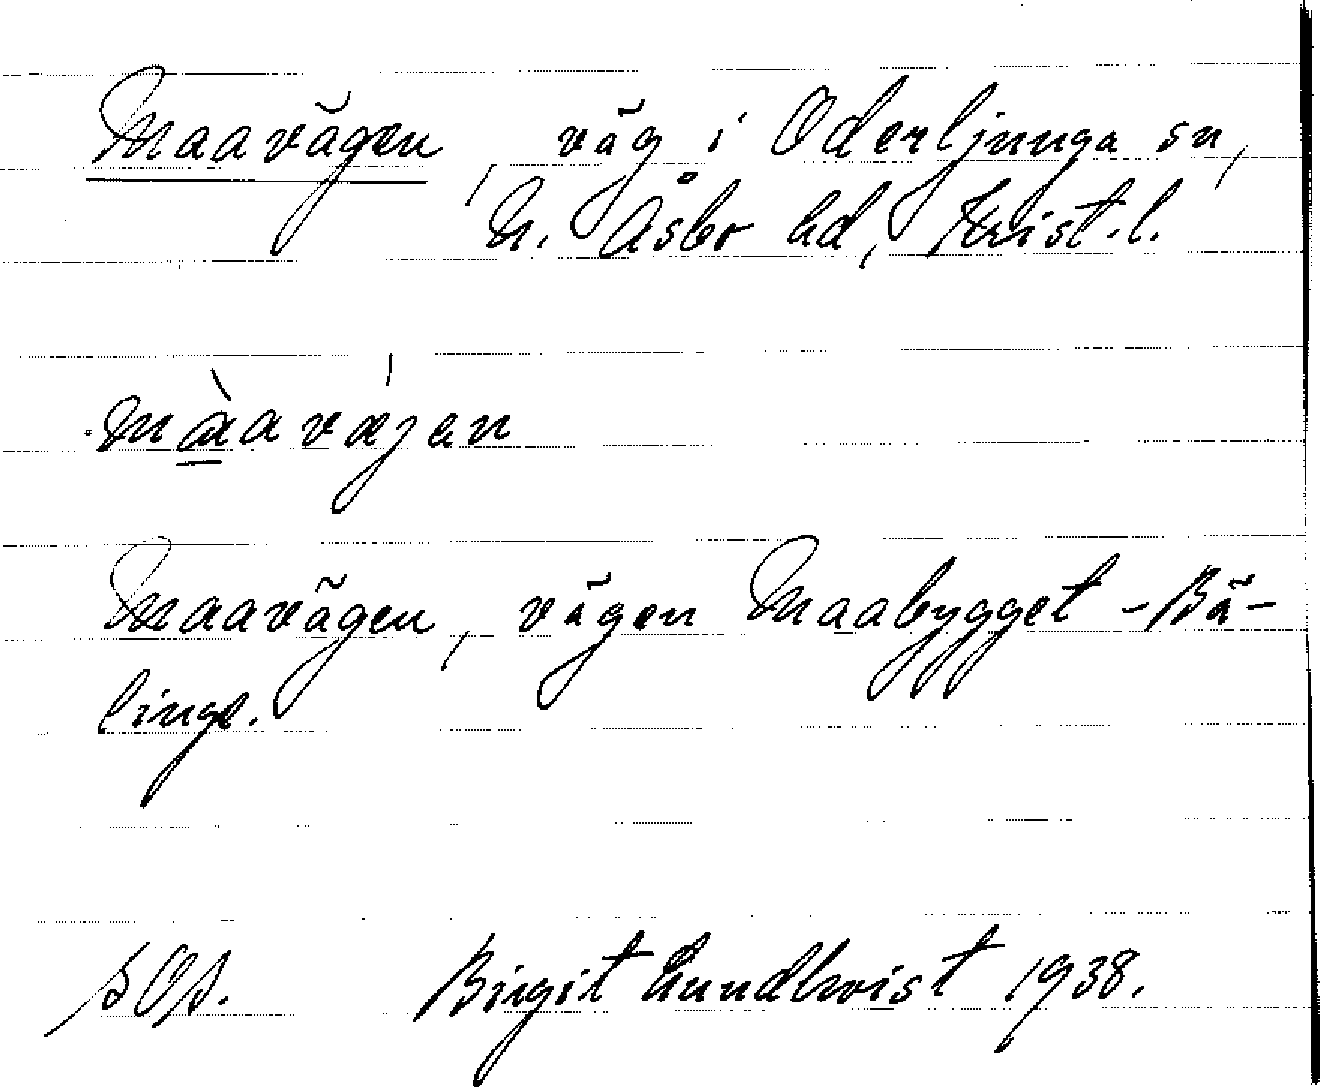 Maavägen, väg i Oderljunga sn,
N. Åsbo hd, Krist. l.
màavǽjen
Maavägen, vägen Maabygget - Bä-
linge.
SOS. Birgit Lundkvist 1938.